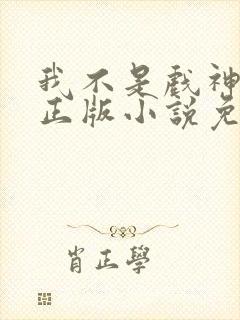 我不是戲神
正版小說免
肖正學